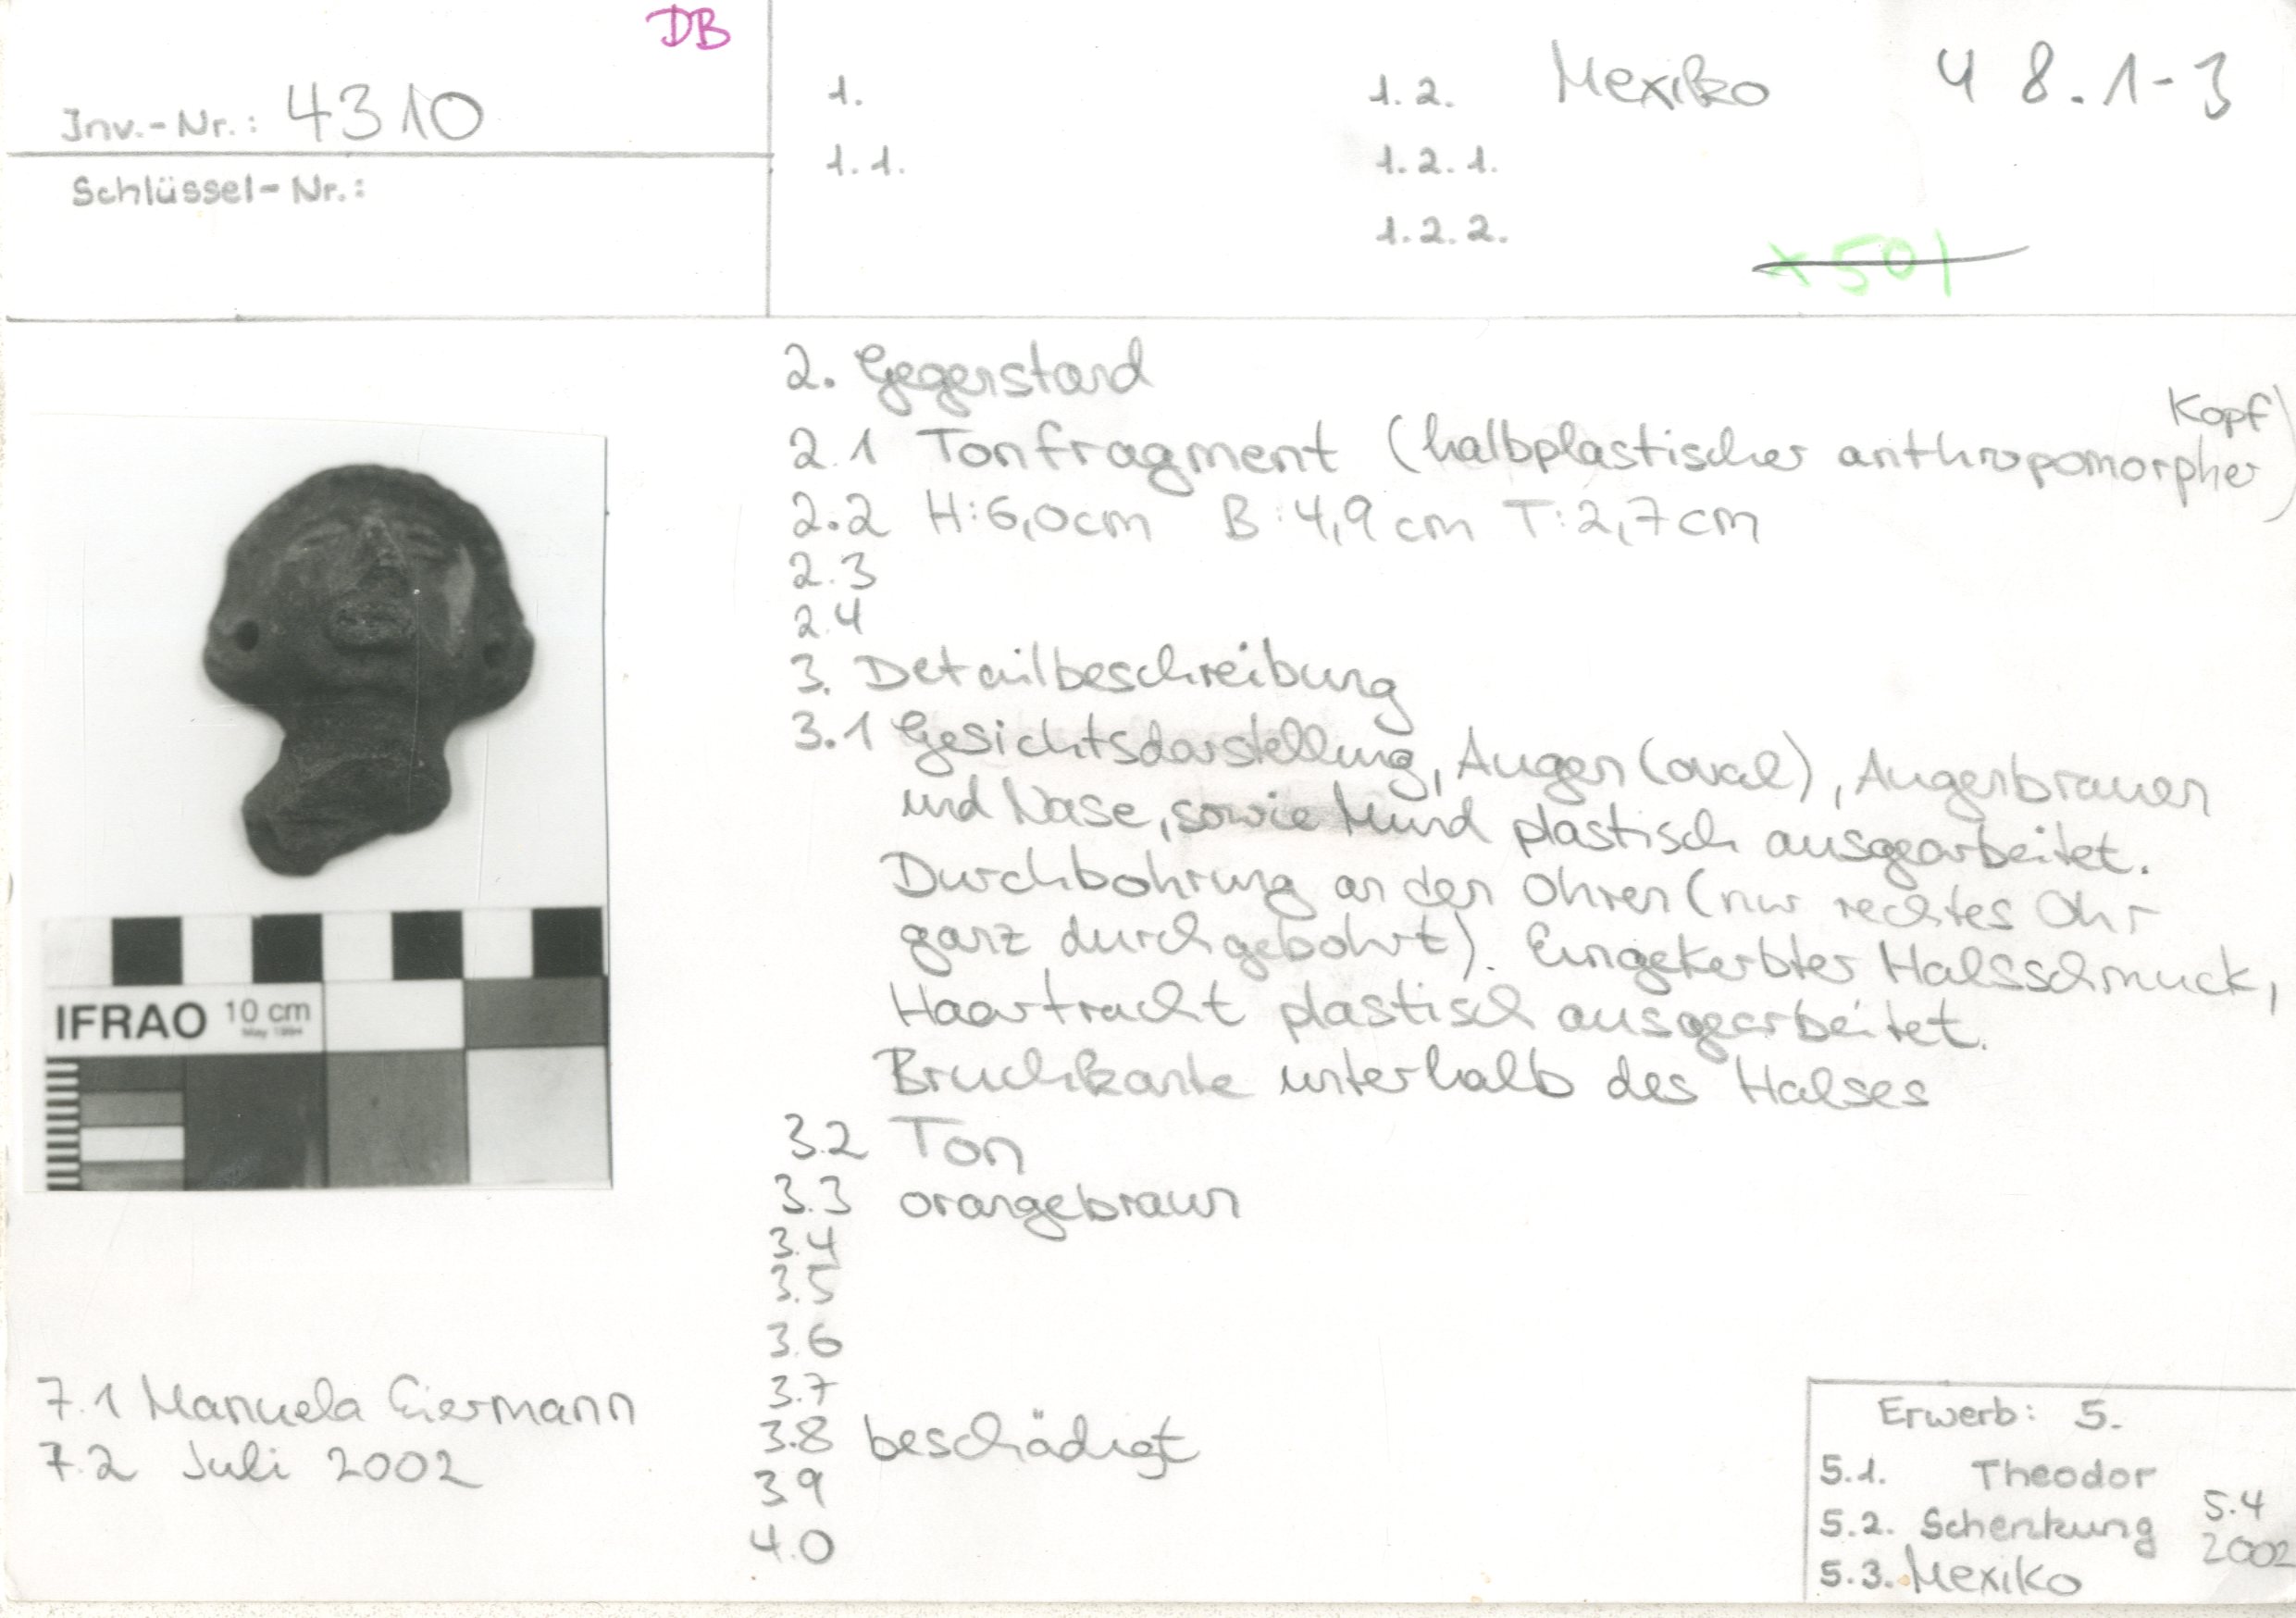 DB
Inv.-Nr.: 4310
Schlüssel-Nr.:
1.
1.1.
1.2. Mexiko 48.1-3
1.2.1.
1.2.2.
x 501
2. Gegenstand
2.1 Tonfragment (halbplastischer anthropomorpher Kopf)
2.2 H:6,0cm B:4,9cm T:2,7cm
2.3
2.4
3. Detailbeschreibung
3.1 Gesichtsdarstellung, Augen (oval), Augenbrauen
und Nase, sowie Mund plastisch ausgearbeitet.
Durchbohrung an den Ohren (nur rechtes Ohr
ganz durchgebohrt). Eingekerbter Halsschmuck,
Haartracht plastisch ausgearbeitet.
Bruchkante unterhalb des Halses
3.2 Ton
3.3 orangebraun
3.4
3.5
3.6
3.7
3.8 beschädigt
3.9
4.0
IFRAO 10 cm
May 1994
7.1 Manuela Eiermann
7.2 Juli 2002
Erwerb: 5.
5.1. Theodor
5.2. Schenkung
5.3. Mexiko
5.4
2002